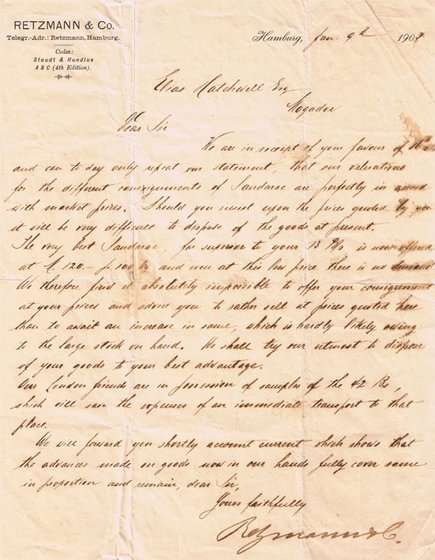 RETZMANN & Co.
Telegr.-Adr.: Retzmann, Hamburg.
Codes:
Staudt & Hundius
A B C (4th Edition).
Hamburg, Jan. 9th 190
Elias Esq
Mogador
Dear Sir
We are in receipt of your favour of
and can to day only repeat our statement, that our valuations
for the different consignments of Sandarac are perfectly in accord
with market prices. Should you insist upon the prices quoted by you
it will be very difficult to dispose of the goods at present.
The very best Sandarac far superior to your 13 is now offered
at 120.- p. 100 and even at this low price there is no demand
We therefore find it absolutely impossible to offer your consignment
at your prices and advise you to rather sell at prices quoted here
than to await an increase in same, which is hardly likely owing
to the large stock on hand. We shall try our utmost to dispose
of your goods to your best advantage.
Our London friends are in possession of samples of the 42 Bs,
which will save the expenses of an immediate transport to that
place.
We will forward you shortly account current which shows that
the advances made on goods now in our hands fully cover same
in proportion and remain, dear Sir,
Yours faithfully
Retzmann & Co.